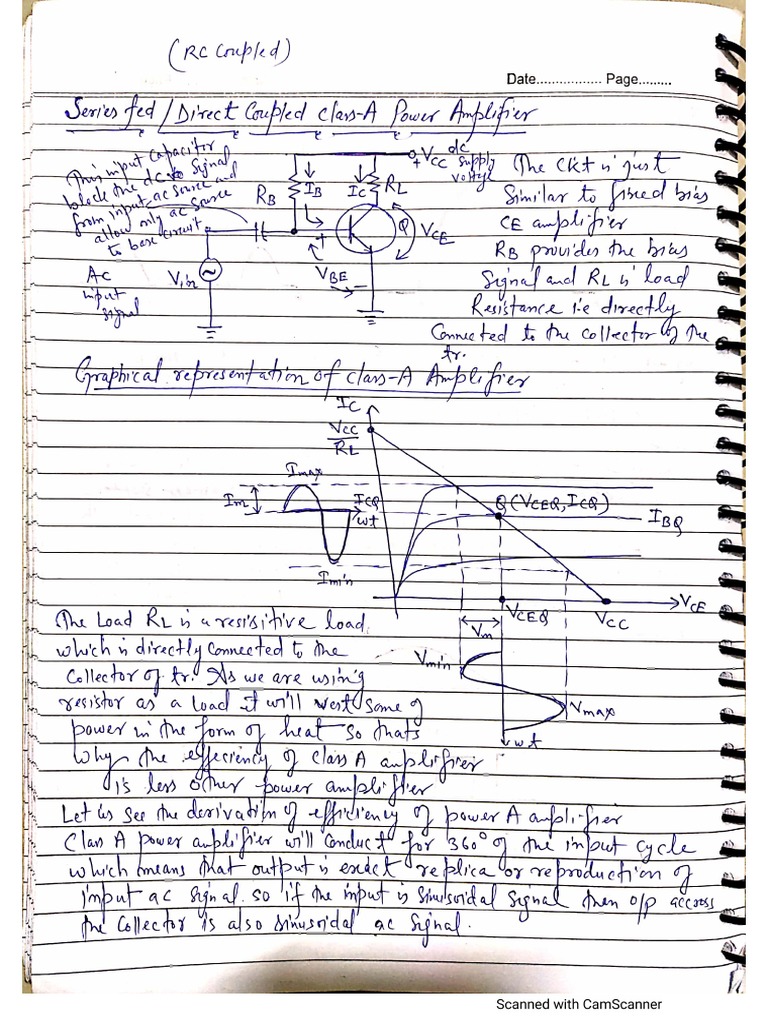 (RC Coupled)
Date................ Page.........
Series fed / Direct Coupled class-A Power Amplifier
This input capacitor
block the dc to signal
from input ac source and
allow only ac source
to base circuit
AC
input
signal
Vin
RB
IB
IC
RL
+VCC dc
supply
voltage
Q
VCE
+
VBE
-
The Ckt is just
Similar to fixed bias
CE amplifier
RB provides the bias
Signal and RL is load
Resistance i.e directly
Connected to the collector of the
tr.
Graphical representation of class-A Amplifier
IC
VCC
RL
Imax
Im
ICQ
wt
Imin
Q(VCEQ, ICQ)
IBQ
VCEQ
VCC
VCE
Vm
Vmin
Vmax
wt
The Load RL is a resisitive load
which is directly connected to the
Collector of tr. As we are using
resistor as a load it will west some of
power in the form of heat so thats
why the effeciency of class A amplifier
is less other power amplifier
Let us see the derivation of efficiency of power A amplifier
Class A power amplifier will conduct for 360° of the input cycle
which means that output is exact replica or reproduction of
input ac signal. so if the input is sinusoidal signal then o/p accross
the Collector is also sinusoidal ac signal.
Scanned with CamScanner